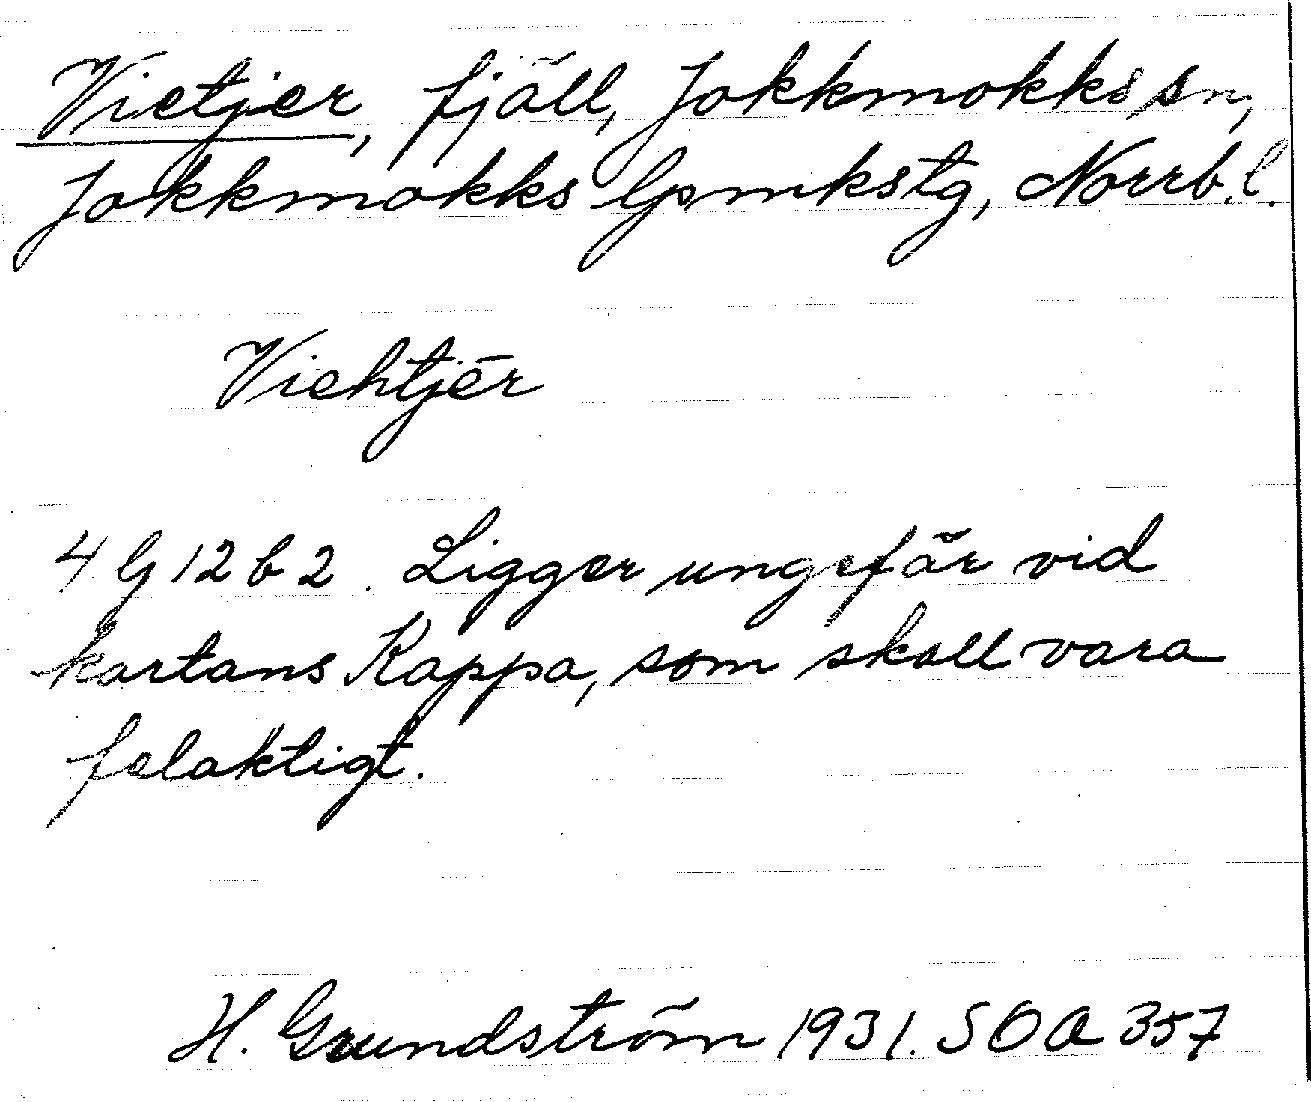 Vietjer, fjäll, Jokkmokks sn,
Jokkmokks lpmkstg, Norrb. l.
Viehtjēr
4 G 12 b 2. Ligger ungefär vid
kartans Kappa, som skall vara
felaktigt.
H. Grundström 1931. SOA 357